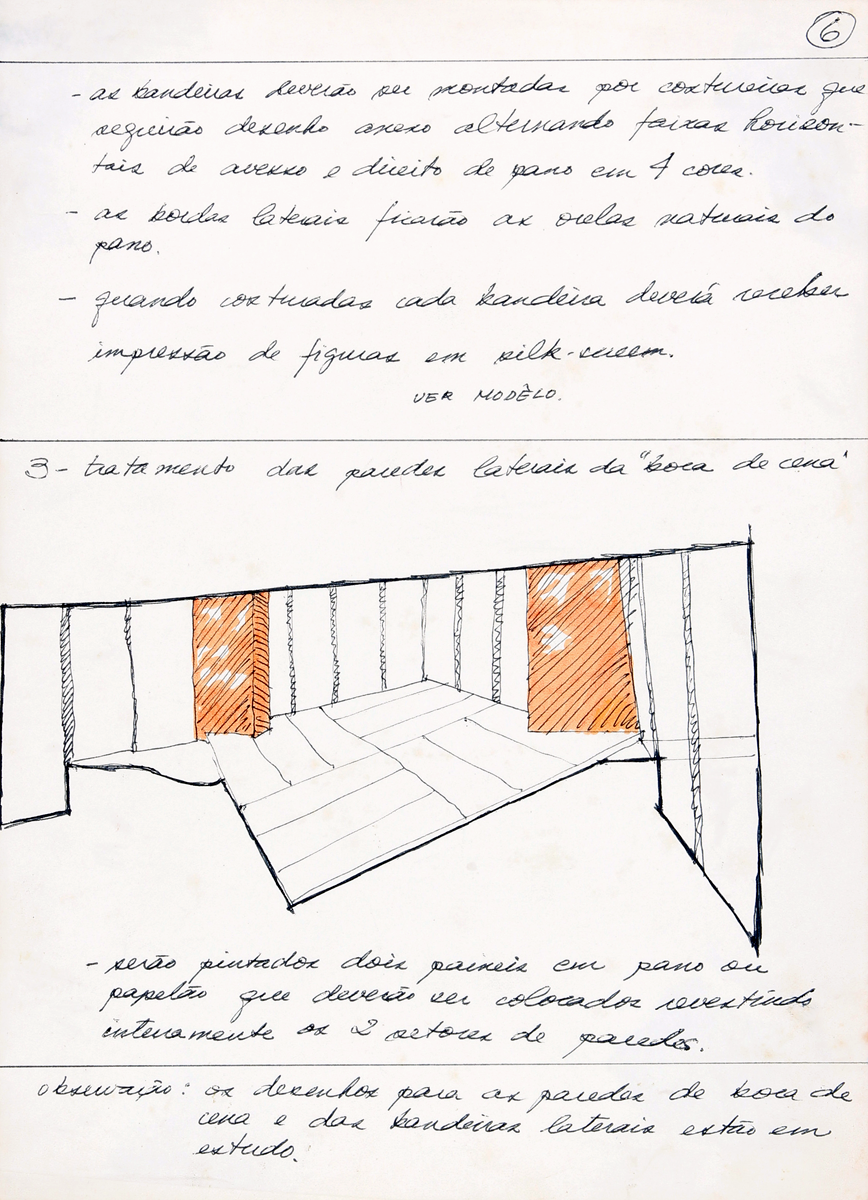 6
- as bandeiras deverão ser montadas por costureiras que
seguirão desenho anexo alternando faixas horison-
tais de avesso e direito de pano em 4 cores.
- as bordas laterais ficarão as orelas naturais do
pano.
- quando costuradas cada bandeira deverá receber
impressão de figuras em silk-screem.
VER MODÊLO.
3 - tratamento das paredes laterais da "boca de cena"
- serão pintados dois paineis em pano ou
papelão que deverão ser colocados revestindo
internamente os 2 setores de paredes.
observação: os desenhos para as paredes de boca de
cena e das bandeiras laterais estão em
estudo.